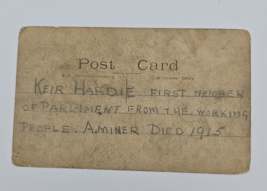 Post Card
KEIR HARDIE FIRST MEMBER
OF PARLIMENT FROM THE WORKING
PEOPLE. A MINER DIED 1915